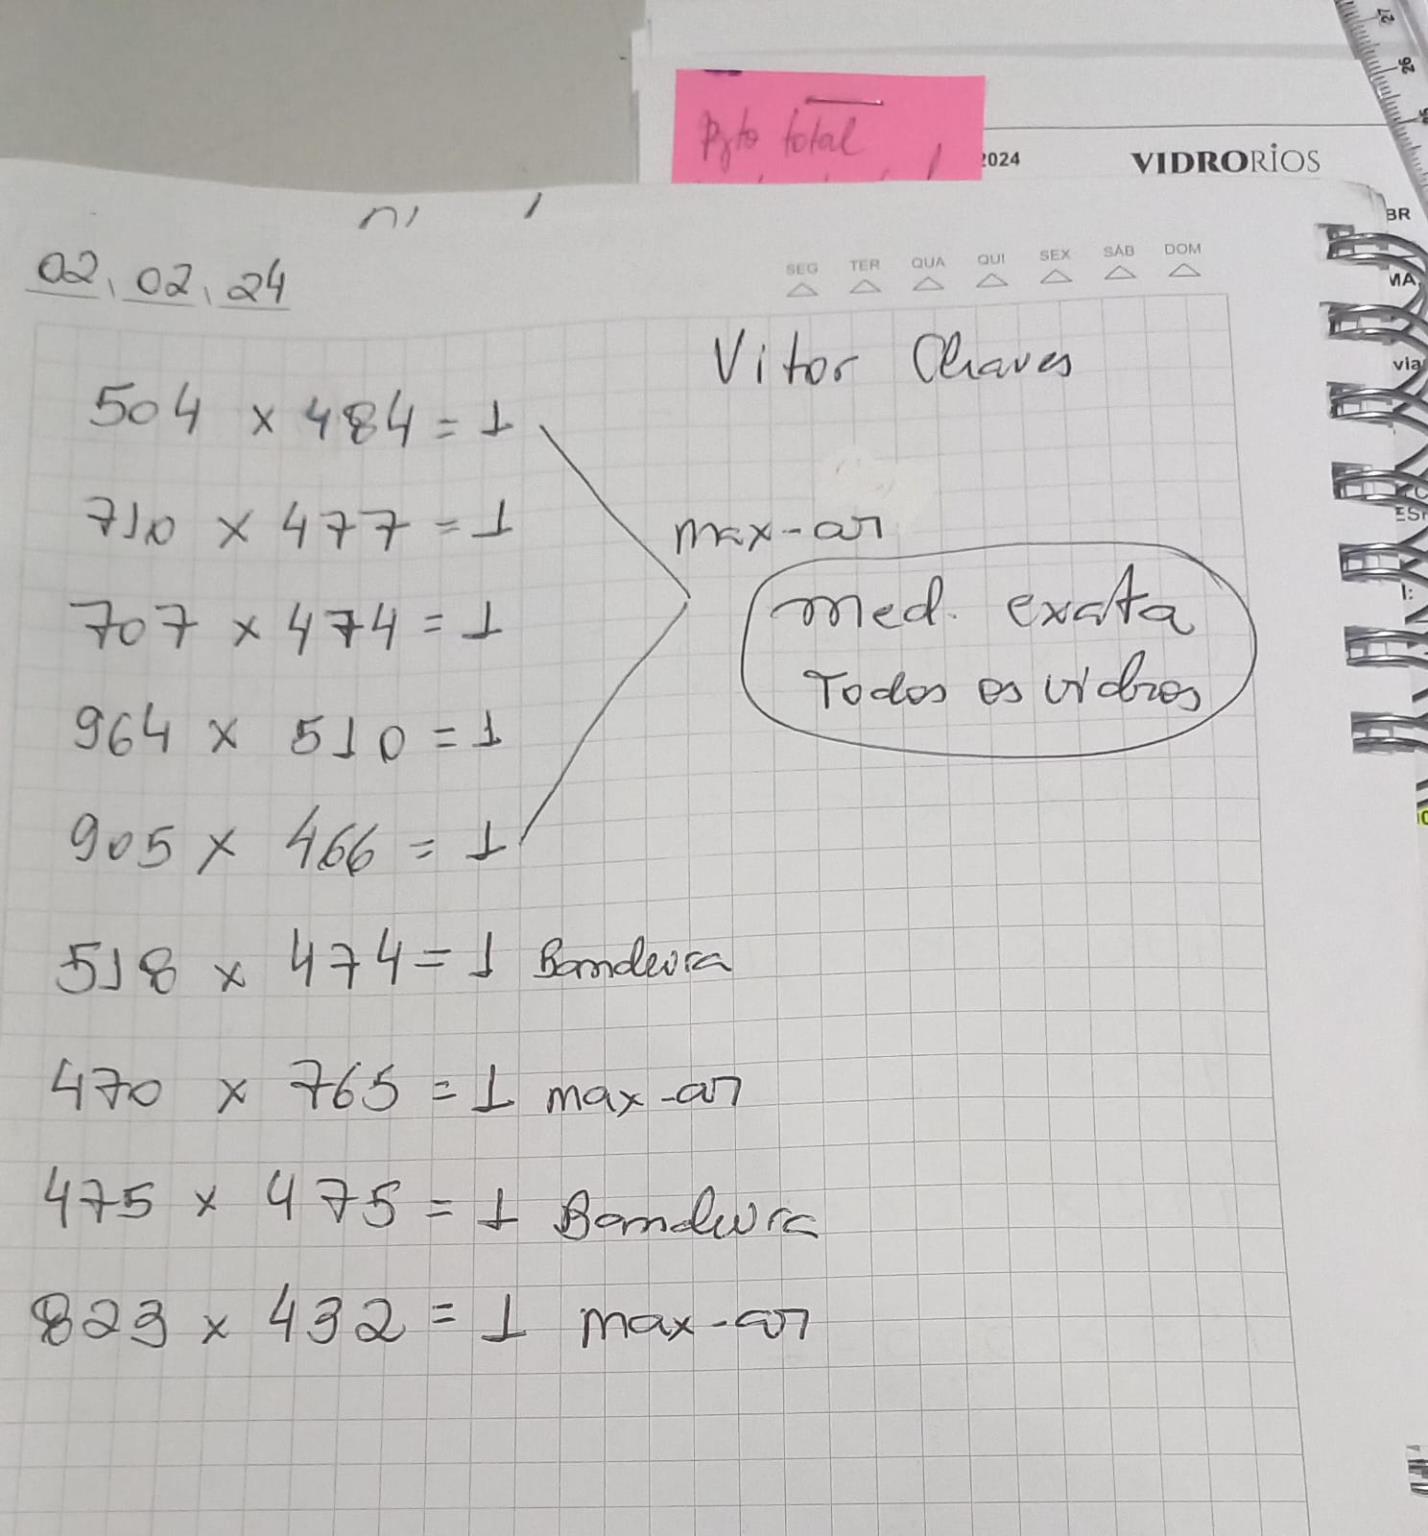 27
26
Pgto total
2024 VIDRORIOS
BR
02, 02, 24
SEG TER QUA QUI SEX SÁB DOM
MA
Vitor Chaves
via
504 x 484 = 1
710 x 477 = 1
max-ar
707 x 474 = 1
med. exata
Todos os vidros
964 x 510 = 1
905 x 466 = 1
518 x 474 = 1 Bandeira
470 x 765 = 1 max-ar
475 x 475 = 1 Bandeira
823 x 432 = 1 max-ar